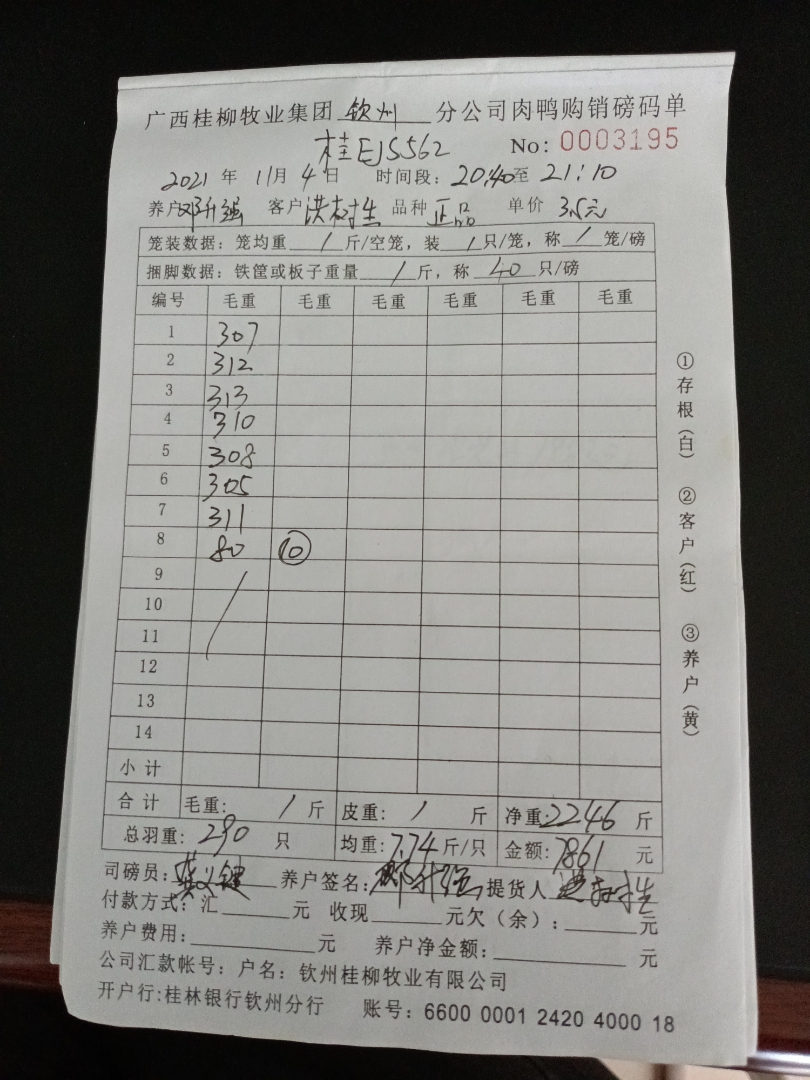 广西桂柳牧业集团 钦州 分公司肉鸭购销磅码单
桂EJS562 No: 0003195
2021 年 11月 4日 时间段: 20:40至 21:10
养户邓升强 客户洪树生 品种 正品 单价 3.5元
笼装数据: 笼均重 / 斤/空笼, 装 / 只/笼, 称 / 笼/磅
捆脚数据: 铁筐或板子重量 / 斤, 称 40 只/磅
编号 毛重 毛重 毛重 毛重 毛重 毛重
1 307
2 312
3 313
4 310
5 308
6 305
7 311
8 80 ⑩
9
10
11
12
13
14
小计
合计 毛重: / 斤 皮重: / 斤 净重:2246 斤
总羽重: 290 只 均重:7.74斤/只 金额:7861 元
司磅员: 养户签名: 邓升强 提货人
付款方式: 汇 元 收现 元欠(余): 元
养户费用: 元 养户净金额: 元
公司汇款帐号: 户名: 钦州桂柳牧业有限公司
开户行:桂林银行钦州分行 账号: 6600 0001 2420 4000 18
①存根(白) ②客户(红) ③养户(黄)